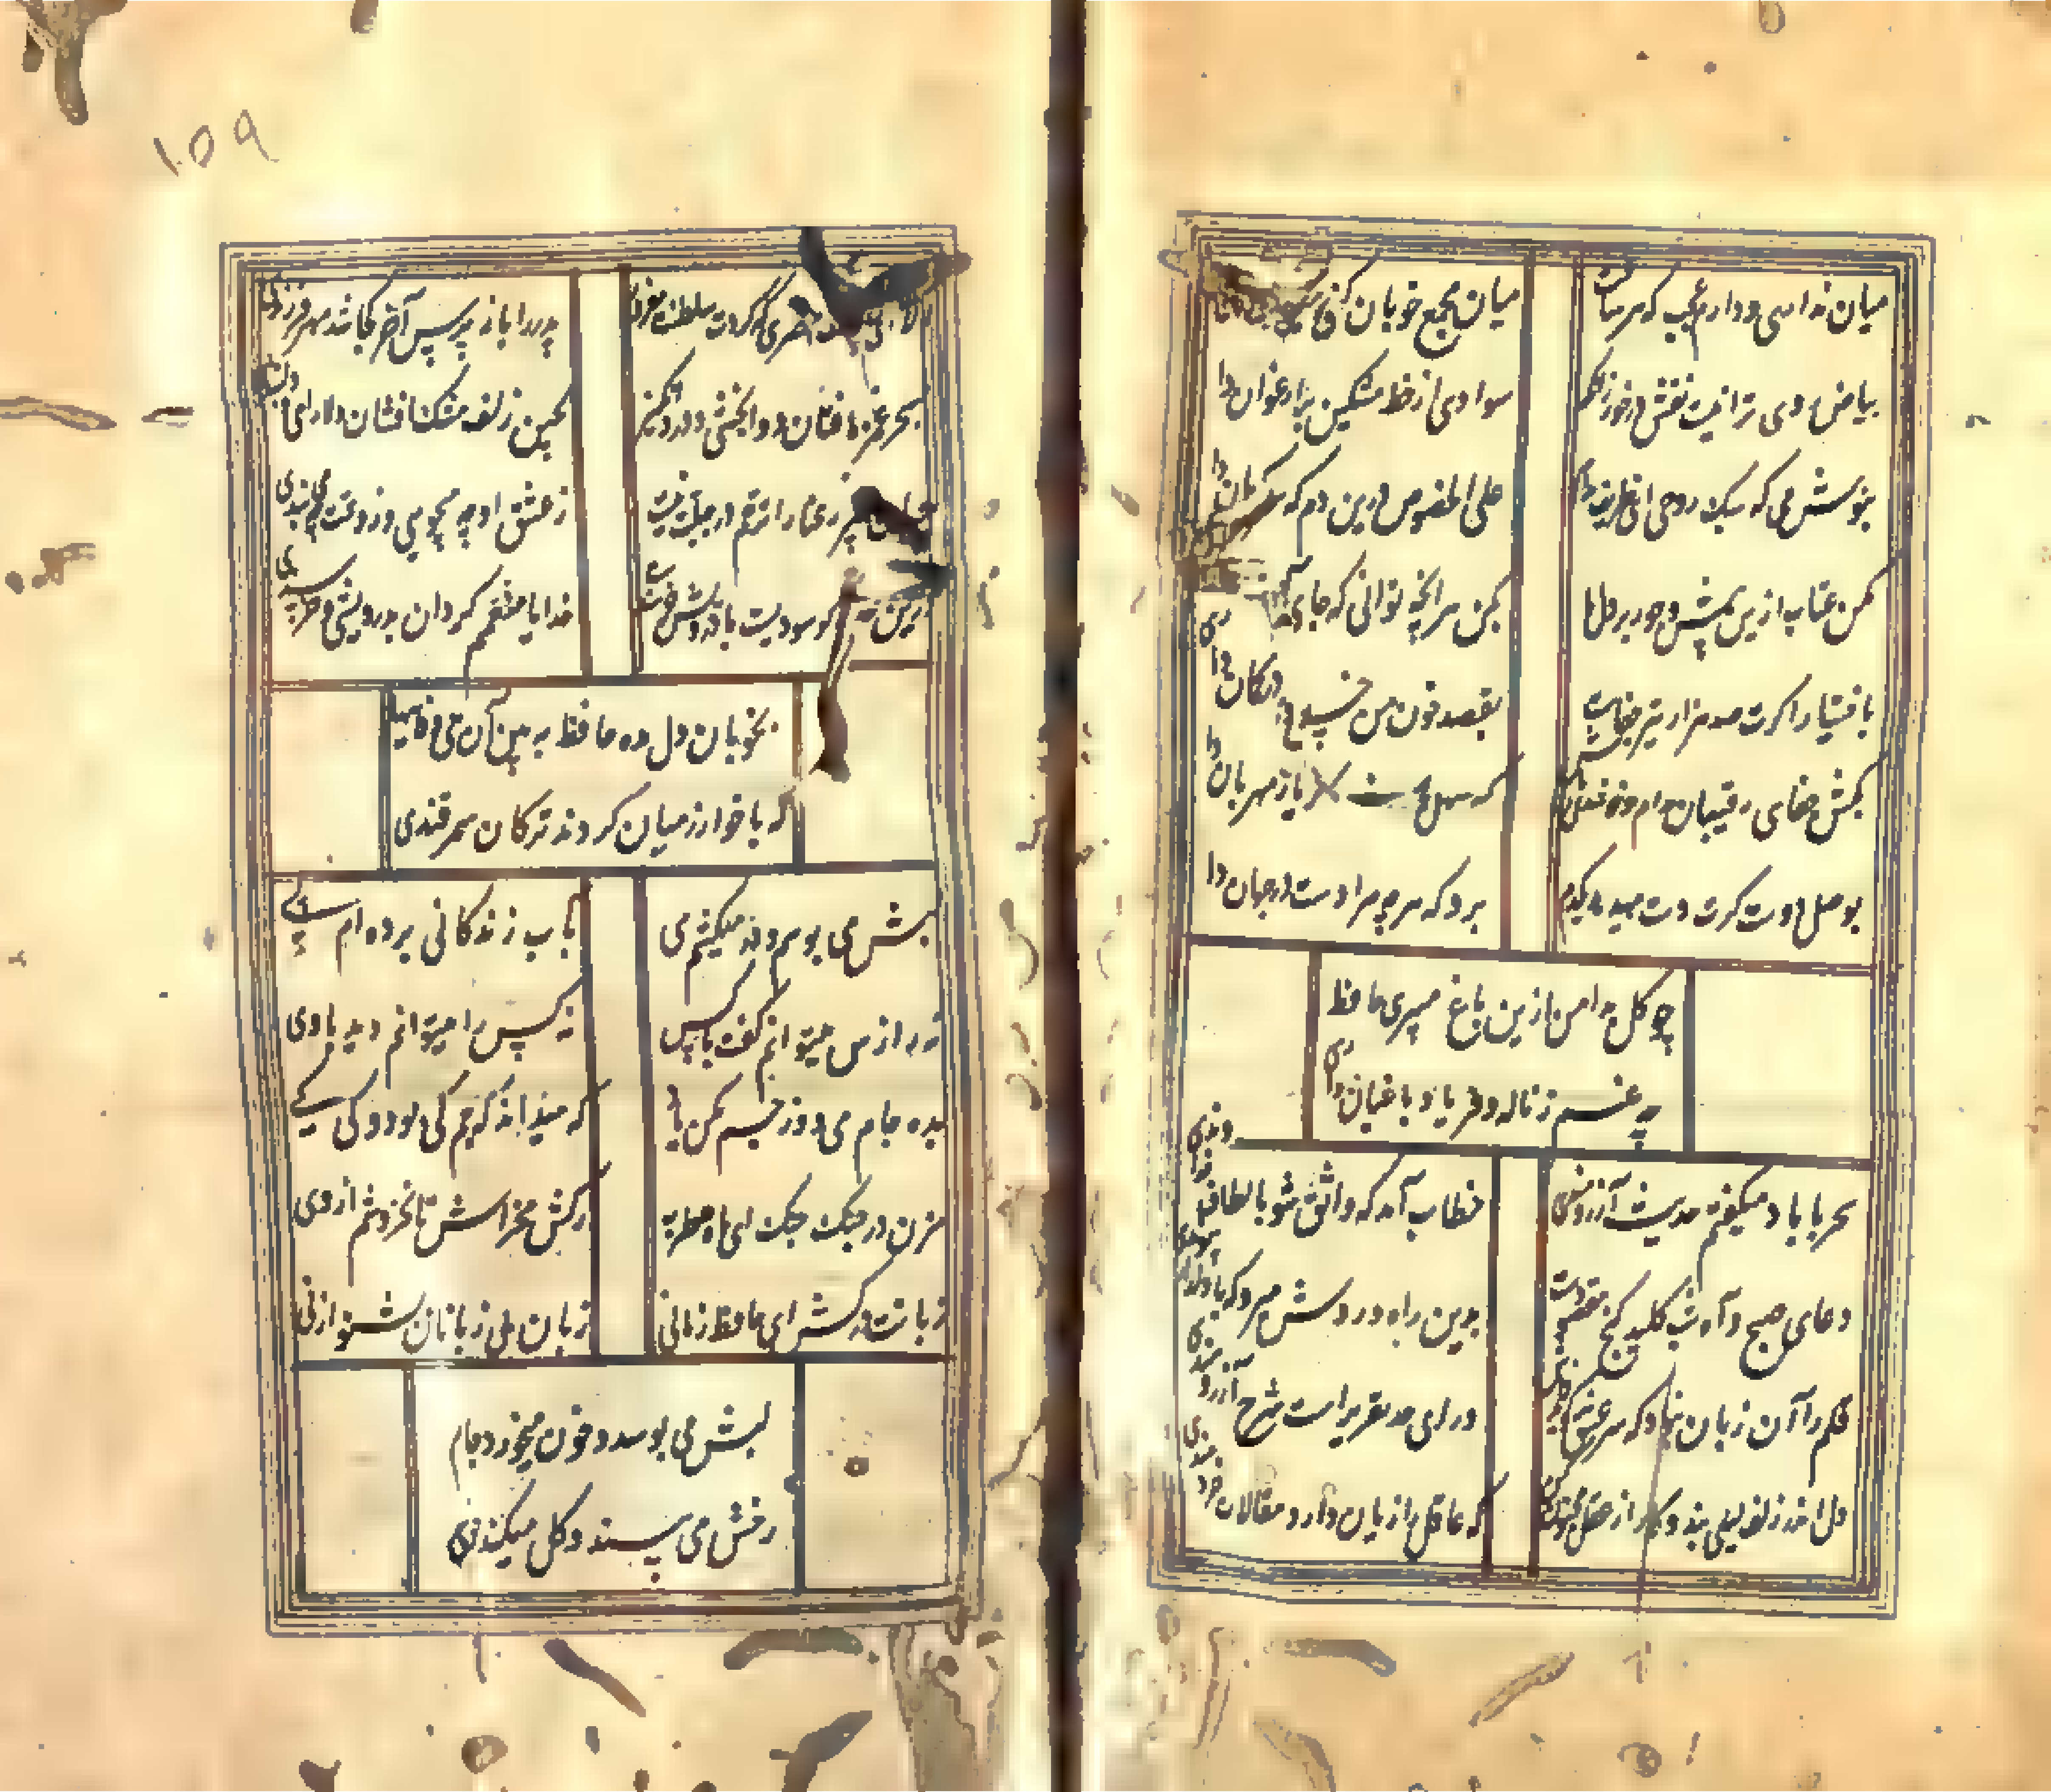 میان نداری و دارم عجب که هر ساعت
میان مجمع خوبان کنی
بیاض روی ترا نیست نقش درخور
سوادی از خط مشکین بر ارغوان داری
بنوش می که سبک روحی ای ظریف مدام
علی الخصوص درین دم که سر گران داری
مکن عتاب ازین بیش و جور بر دل ما
بکن هر انچه توانی که جای آن داری
باختیارت اگر صد هزار تیر جفاست
بقصد خون من خسته در کمان داری
بکش جفای رقیبان مدام و خوشدل باش
که سهل باشد یار مهربان داری
بوصل دوست گرت دست میدهد یکدم
برو که هر چه مرادست در جهان داری
چو گل بدامن ازین باغ میبری حافظ
چه غم ز ناله و فریاد باغبان داری
سحر با باد میگفتم حدیث آرزومندی
خطاب آمد که واثق شو بالطاف خداوندی
دعای صبح و آه شب کلید گنج مقصودست
بدین راه و روش میرو که با دلدار پیوندی
قلم را آن زبان نبود که سر عشق گوید باز
ورای حد تقریر است شرح آرزومندی
دل اندر زلف لیلی بند و کار از عقل مجنون کن
که عاقل را زیان دارد مقالات خردمندی
۱۵۹
الا ای یوسف مصری که کردت سلطنت مغرور
پدر را باز پرس آخر کجا شد مهر فرزندی
بسحر غمزه فتان دوا بخشی و درد انگیز
بچین زلف مشک افشان دلارامی و دلبندی
جهان پیر رعنا را ترحم در جبلت نیست
ز عشق او چه میجویی و در وی همت چه میبندی
درین گر سودیست با درویش خرسندست
خدایا منعمم گردان بدرویشی و خرسندی
بخوبان دل مده حافظ ببین آن بی وفاییها
که با خوارزمیان کردند ترکان سمرقندی
لبش می بوسم و در میکشم می
بآب زندگانی برده ام پی
نه رازش میتوانم گفت با کس
نه کس را میتوانم دید با وی
بده جام می و از جم مکن یاد
که میداند که جم کی بود و کی کی
بزن در چنگ چنگ ای ماه مطرب
رگش بخراش تا بخروشم از وی
زبانت در کش ای حافظ زمانی
زبان بی زبانان بشنو از نی
لبش می بوسد و خون میخورد جام
رخش می بیند و گل میکند خوی